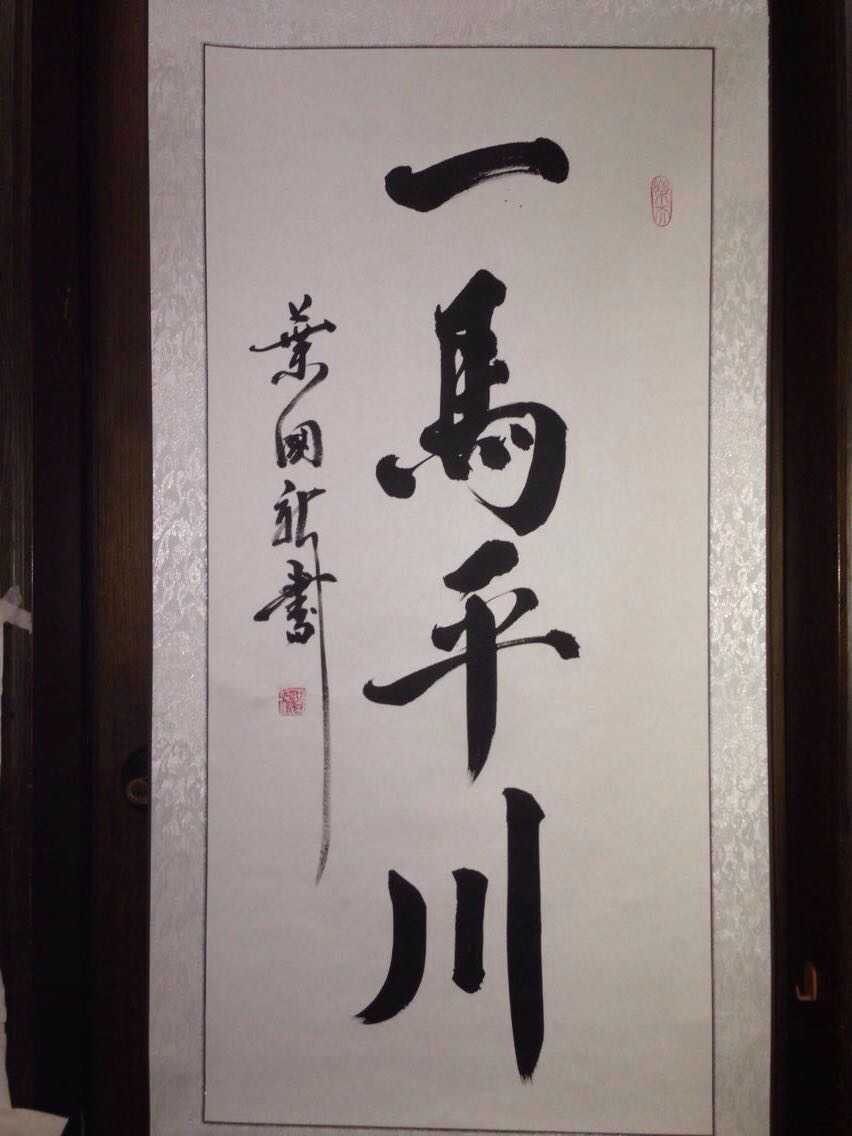 一馬平川
葉国新書